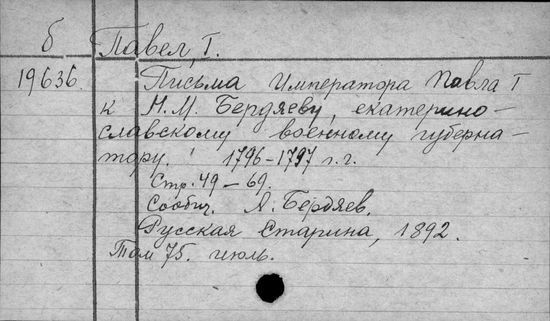 б Павел, I.
19636. Письма Императора Павла I
к Н.М. Бердяеву, екатерино-
славскому военному губерна-
тору. 1796-1797 г.г.
Стр. 49-69.
Сообщ. А. Бердяев.
Русская Старина, 1892.
Том 75. июль.